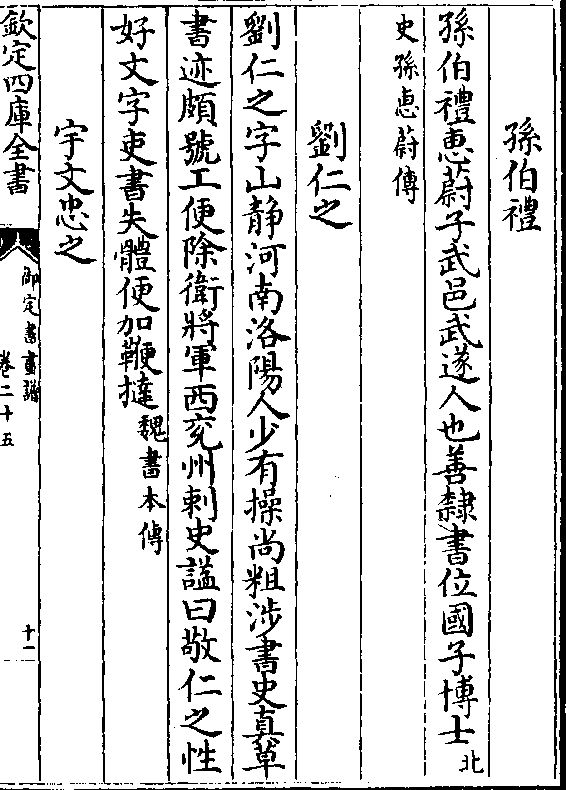 孫伯禮
孫伯禮惠蔚子武邑武遂人也善隸書位國子博士北
史孫惠蔚傳
劉仁之
劉仁之字山静河南洛陽人少有操尚粗涉書史真草
書迹頗號工便除衛將軍西兖州刺史諡曰敬仁之性
好文字吏書失體便加鞭撻魏書本傳
宇文忠之
欽定四庫全書
御定書畫譜
卷二十五
十一